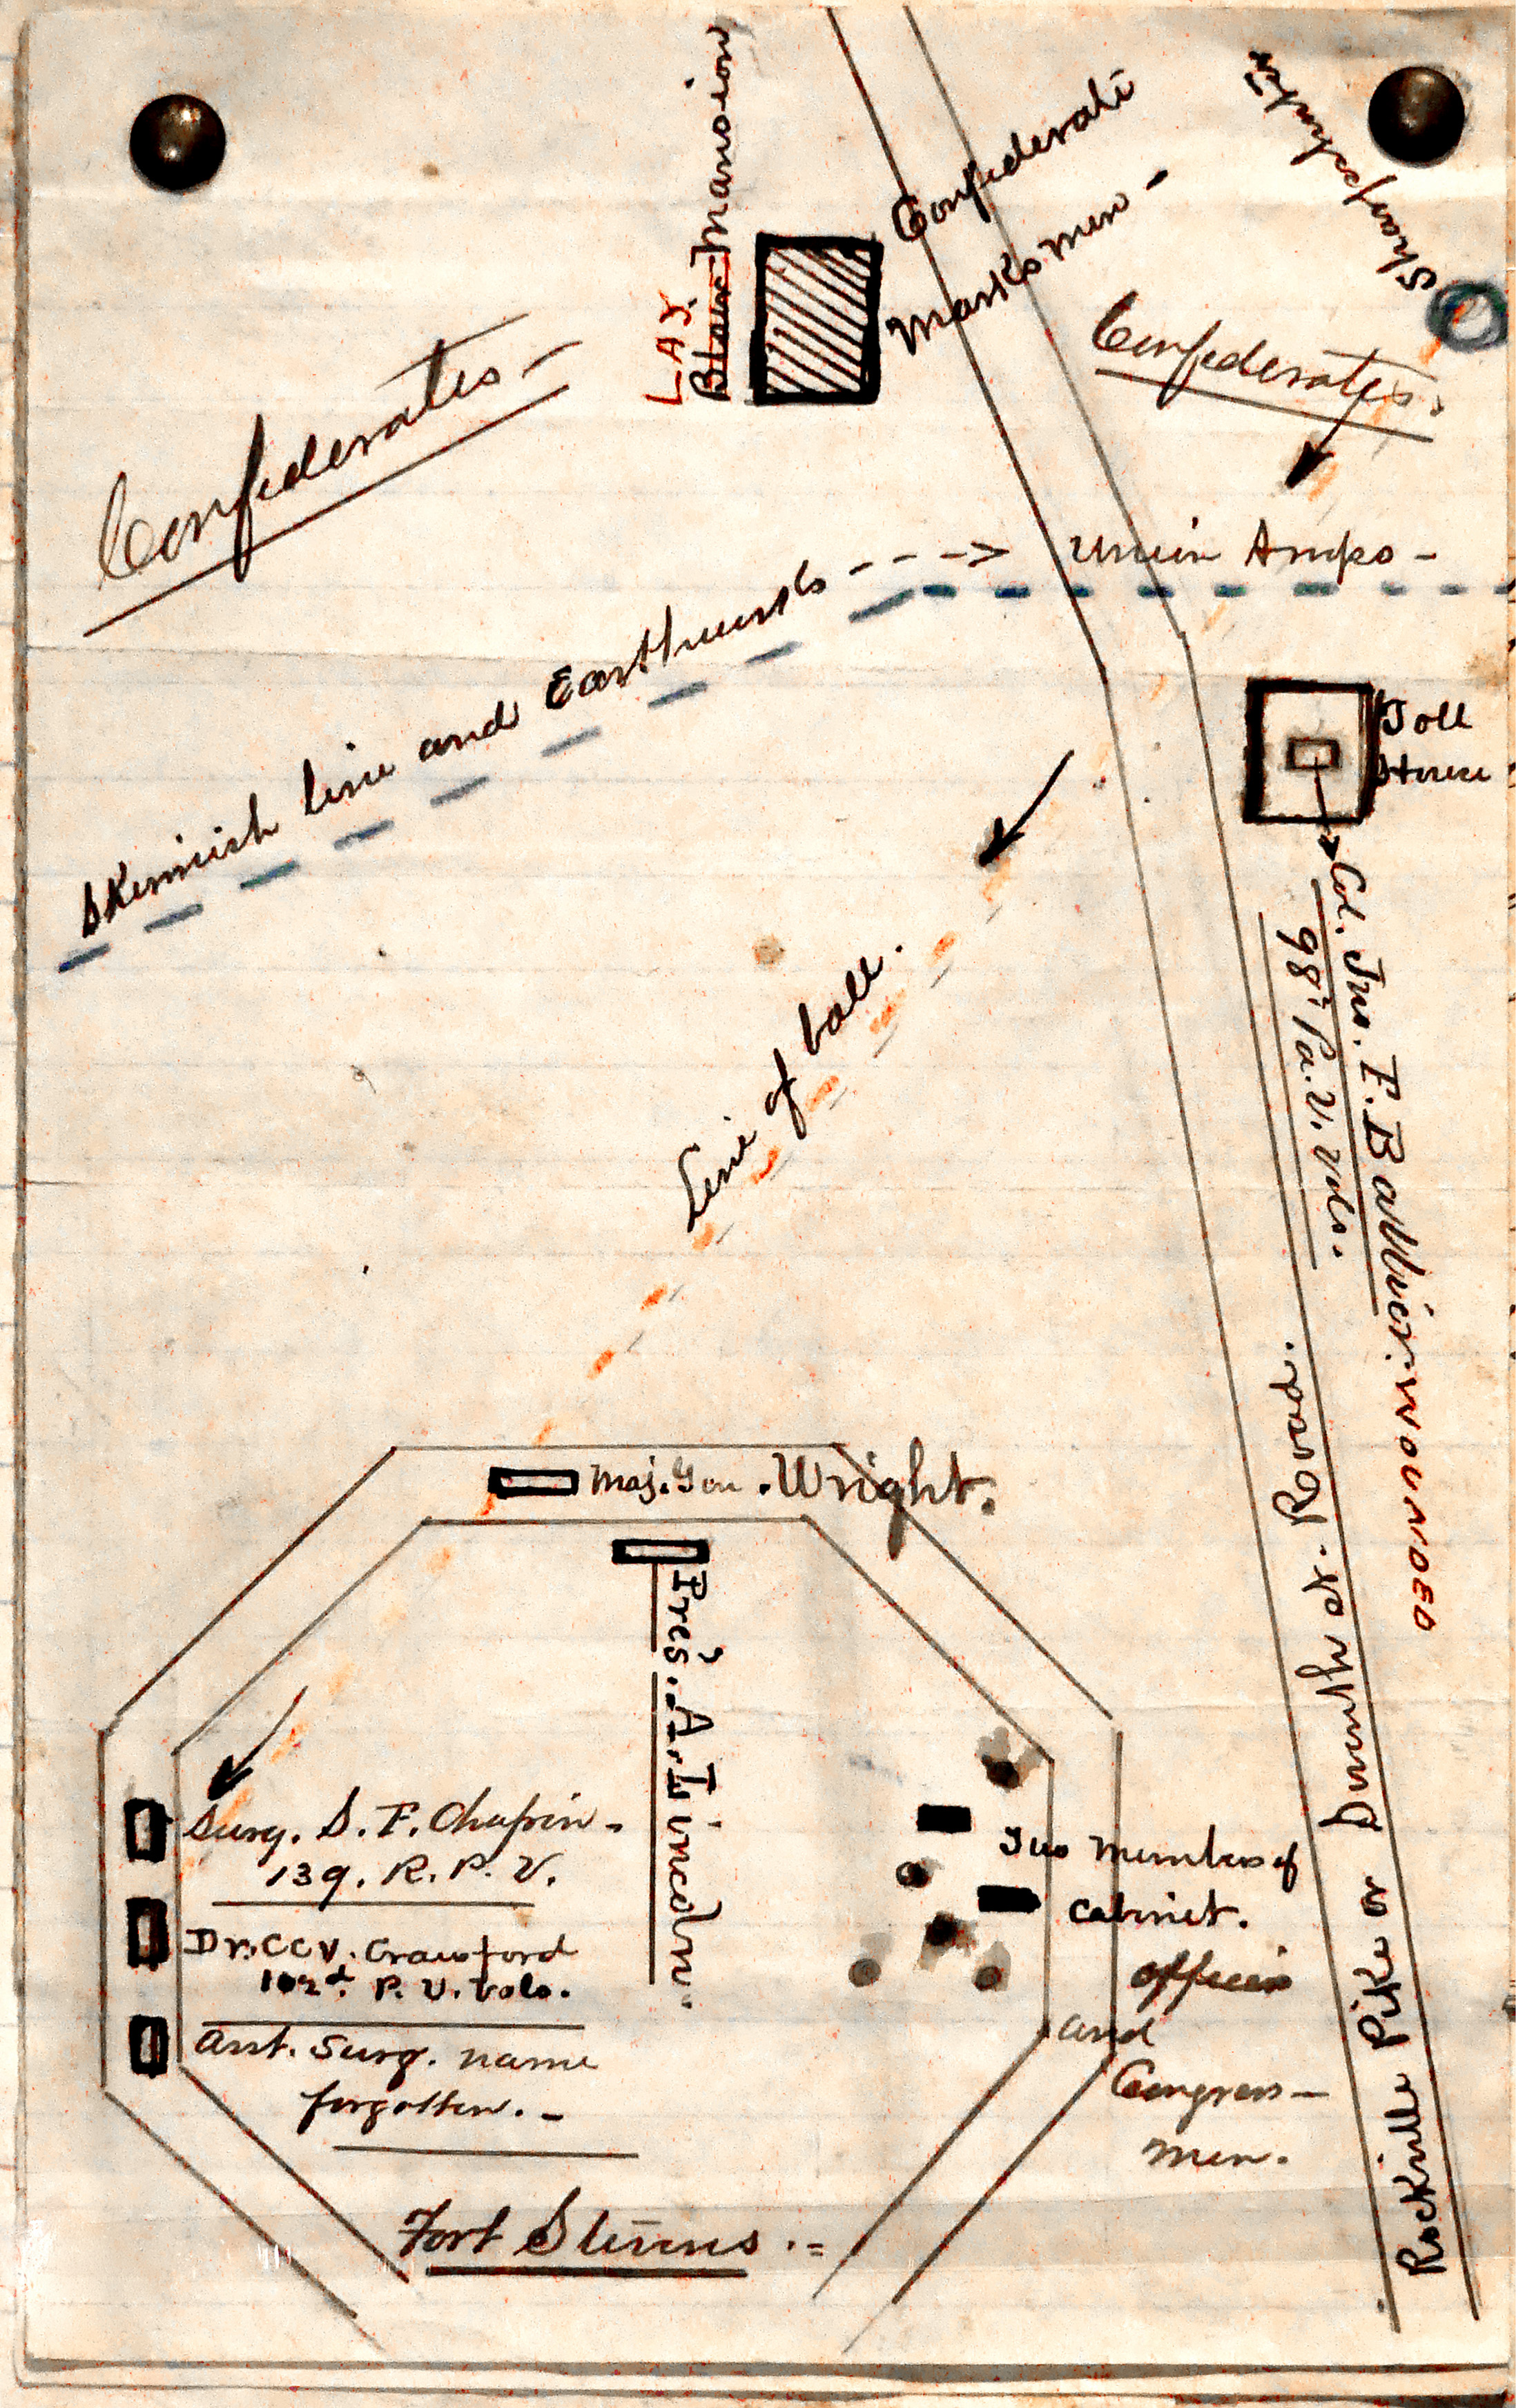 LAY
Blair Mansion
Confederate
Marksmen -
Sharpshooter
Confederates.
Confederates -
Union Troops -
Skirmish line and Earthworks - - - ->
Toll
House
Col. Jno. F. Ballier. WOUNDED
98th Pa. V. Vols.
Line of ball.
Maj. Gen. Wright.
Pres. A. Lincoln.
Surg. S. F. Chapin -
139. R. P. V.
Dr. C C V. Crawford
102d. P. V. Vols.
Asst. Surg. name
forgotten. -
Two Members of
Cabinet.
officers
and
Congress -
men.
Rockville Pike or Seventh st. Road.
Fort Stevens . =